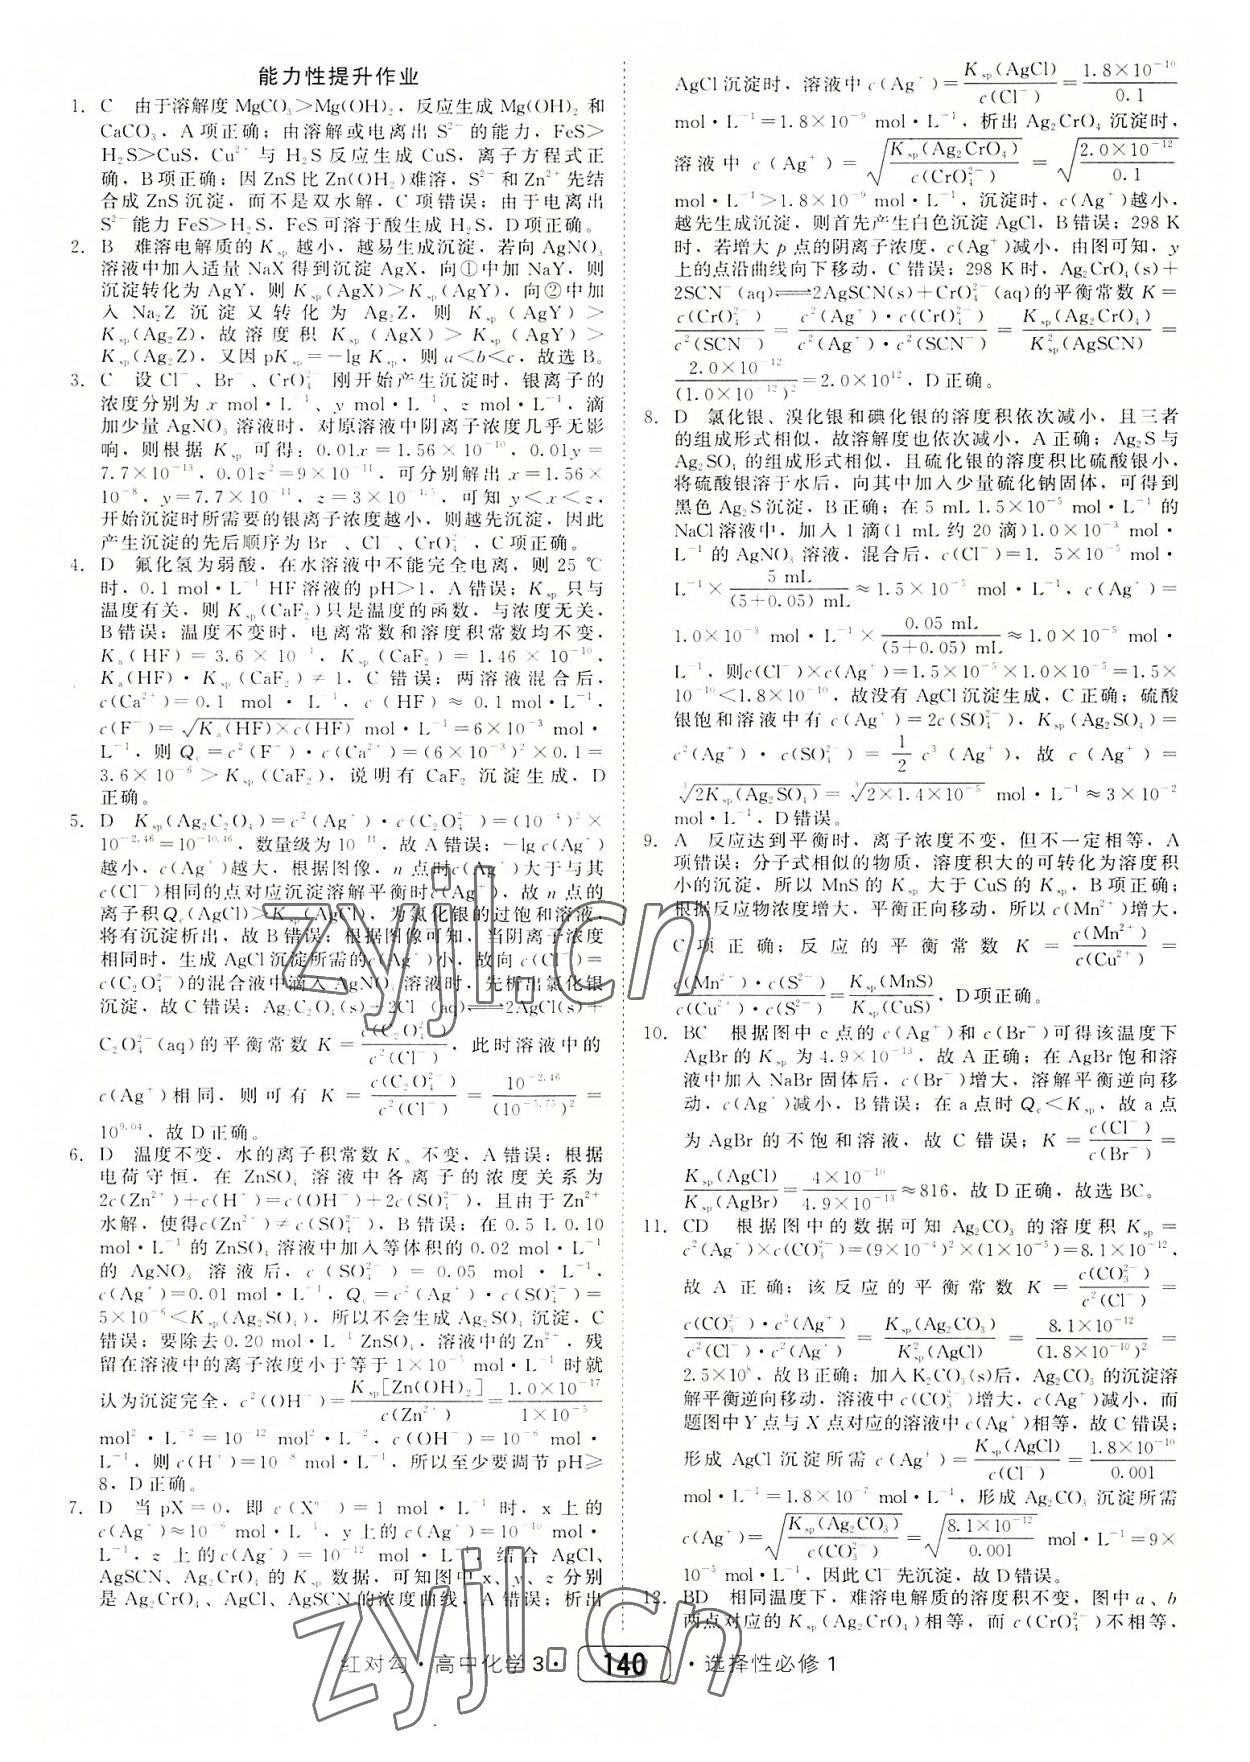 能力性提升作业
1. C 由于溶解度 MgCO₃>Mg(OH)₂,反应生成 Mg(OH)₂ 和
CaCO₃,A项正确;由溶解或电离出 S²⁻ 的能力,FeS>
H₂S>CuS,Cu²⁺ 与 H₂S 反应生成 CuS,离子方程式正
确,B项正确;因 ZnS 比 Zn(OH₂)难溶,S²⁻ 和 Zn²⁺ 先结
合成 ZnS 沉淀,而不是双水解,C项错误;由于电离出
S²⁻ 能力 FeS>H₂S,FeS 可溶于酸生成 H₂S,D项正确。
2. B 难溶电解质的 Ksp 越小,越易生成沉淀,若向 AgNO₃
溶液中加入适量 NaX 得到沉淀 AgX,向①中加 NaY,则
沉淀转化为 AgY,则 Ksp(AgX)>Ksp(AgY),向②中加
入 Na₂Z 沉淀又转化为 Ag₂Z,则 Ksp(AgY)>
Ksp(Ag₂Z),故溶度积 Ksp(AgX)>Ksp(AgY)>
Ksp(Ag₂Z),又因 pKsp=-lg Ksp,则 a<b<c,故选B。
3. C 设 Cl⁻、Br⁻、CrO₄²⁻ 刚开始产生沉淀时,银离子的
浓度分别为 x mol·L⁻¹、y mol·L⁻¹、z mol·L⁻¹,滴
加少量 AgNO₃ 溶液时,对原溶液中阴离子浓度几乎无影
响,则根据 Ksp 可得:0.01x=1.56×10⁻¹⁰,0.01y=
7.7×10⁻¹³,0.01z²=9×10⁻¹¹,可分别解出 x=1.56×
10⁻⁸,y=7.7×10⁻¹¹,z=3×10⁻⁴·⁵,可知 y<x<z,
开始沉淀时所需要的银离子浓度越小,则越先沉淀,因此
产生沉淀的先后顺序为 Br⁻、Cl⁻、CrO₄²⁻,C项正确。
4. D 氟化氢为弱酸,在水溶液中不能完全电离,则 25 ℃
时,0.1 mol·L⁻¹ HF 溶液的 pH>1,A错误;Ksp 只与
温度有关,则 Ksp(CaF₂)只是温度的函数,与浓度无关,
B错误;温度不变时,电离常数和溶度积常数均不变,
Ka(HF)=3.6×10⁻⁴,Ksp(CaF₂)=1.46×10⁻¹⁰,
Ka(HF)·Ksp(CaF₂)≠1,C错误;两溶液混合后,
c(Ca²⁺)=0.1 mol·L⁻¹,c(HF)≈0.1 mol·L⁻¹,
c(F⁻)=√(Ka(HF)×c(HF)) mol·L⁻¹=6×10⁻³ mol·
L⁻¹,则 Qc=c²(F⁻)·c(Ca²⁺)=(6×10⁻³)²×0.1=
3.6×10⁻⁶>Ksp(CaF₂),说明有 CaF₂ 沉淀生成,D
正确。
5. D Ksp(Ag₂C₂O₄)=c²(Ag⁺)·c(C₂O₄²⁻)=(10⁻⁴)²×
10⁻²·⁴⁶=10⁻¹⁰·⁴⁶,数量级为 10⁻¹¹,故A错误;-lg c(Ag⁺)
越小,c(Ag⁺)越大,根据图像,n 点时 c(Ag⁺)大于与其
c(Cl⁻)相同的点对应沉淀溶解平衡时c(Ag⁺),故 n 点的
离子积Qc(AgCl)>Ksp(AgCl),为氯化银的过饱和溶液,
将有沉淀析出,故B错误;根据图像可知,当阴离子浓度
相同时,生成 AgCl 沉淀所需的c(Ag⁺)小,故向 c(Cl⁻)=
c(C₂O₄²⁻)的混合液中滴入 AgNO₃ 溶液时,先析出氯化银
沉淀,故C错误;Ag₂C₂O₄(s)+2Cl⁻(aq)⇌2AgCl(s)+
C₂O₄²⁻(aq)的平衡常数 K=c(C₂O₄²⁻)/c²(Cl⁻),此时溶液中的
c(Ag⁺)相同,则可有 K=c(C₂O₄²⁻)/c²(Cl⁻)=10⁻²·⁴⁶/(10⁻⁵·⁷⁵)²=
10⁹·⁰⁴,故D正确。
6. D 温度不变,水的离子积常数 Kw 不变,A错误;根据
电荷守恒,在 ZnSO₄ 溶液中各离子的浓度关系为
2c(Zn²⁺)+c(H⁺)=c(OH⁻)+2c(SO₄²⁻),且由于 Zn²⁺
水解,使得c(Zn²⁺)≠c(SO₄²⁻),B错误;在 0.5 L 0.10
mol·L⁻¹ 的 ZnSO₄ 溶液中加入等体积的 0.02 mol·L⁻¹
的 AgNO₃ 溶液后,c(SO₄²⁻)=0.05 mol·L⁻¹,
c(Ag⁺)=0.01 mol·L⁻¹,Qc=c²(Ag⁺)·c(SO₄²⁻)=
5×10⁻⁶<Ksp(Ag₂SO₄),所以不会生成 Ag₂SO₄ 沉淀,C
错误;要除去 0.20 mol·L⁻¹ ZnSO₄ 溶液中的 Zn²⁺,残
留在溶液中的离子浓度小于等于 1×10⁻⁵ mol·L⁻¹ 时就
认为沉淀完全,c²(OH⁻)=Ksp[Zn(OH)₂]/c(Zn²⁺)=1.0×10⁻¹⁷/1×10⁻⁵
mol²·L⁻²=10⁻¹² mol²·L⁻²,c(OH⁻)=10⁻⁶ mol·
L⁻¹,则 c(H⁺)=10⁻⁸ mol·L⁻¹,所以至少要调节 pH≥
8,D正确。
7. D 当 pX=0,即 c(Xⁿ⁻)=1 mol·L⁻¹ 时,x 上的
c(Ag⁺)≈10⁻⁶ mol·L⁻¹,y 上的 c(Ag⁺)=10⁻¹⁰ mol·
L⁻¹,z 上的 c(Ag⁺)=10⁻¹² mol·L⁻¹,结合 AgCl、
AgSCN、Ag₂CrO₄ 的 Ksp 数据,可知图中x、y、z 分别
是 Ag₂CrO₄、AgCl、AgSCN 的溶度曲线,A错误;析出
AgCl 沉淀时,溶液中 c(Ag⁺)=Ksp(AgCl)/c(Cl⁻)=1.8×10⁻¹⁰/0.1
mol·L⁻¹=1.8×10⁻⁹ mol·L⁻¹,析出 Ag₂CrO₄ 沉淀时,
溶液中 c(Ag⁺)=√(Ksp(Ag₂CrO₄)/c(CrO₄²⁻))=√(2.0×10⁻¹²/0.1)
mol·L⁻¹>1.8×10⁻⁹ mol·L⁻¹,沉淀时,c(Ag⁺)越小,
越先生成沉淀,则首先产生白色沉淀 AgCl,B错误;298 K
时,若增大 p 点的阴离子浓度,c(Ag⁺)减小,由图可知,y
上的点沿曲线向下移动,C错误;298 K 时,Ag₂CrO₄(s)+
2SCN⁻(aq)⇌2AgSCN(s)+CrO₄²⁻(aq)的平衡常数 K=
c(CrO₄²⁻)/c²(SCN⁻)=c²(Ag⁺)·c(CrO₄²⁻)/c²(Ag⁺)·c²(SCN⁻)=Ksp(Ag₂CrO₄)/K²sp(AgSCN)=
2.0×10⁻¹²/(1.0×10⁻¹²)²=2.0×10¹²,D正确。
8. D 氯化银、溴化银和碘化银的溶度积依次减小,且三者
的组成形式相似,故溶解度也依次减小,A正确;Ag₂S 与
Ag₂SO₄ 的组成形式相似,且硫化银的溶度积比硫酸银小,
将硫酸银溶于水后,向其中加入少量硫化钠固体,可得到
黑色 Ag₂S 沉淀,B正确;在 5 mL 1.5×10⁻⁵ mol·L⁻¹ 的
NaCl 溶液中,加入 1 滴(1 mL 约 20 滴)1.0×10⁻³ mol·
L⁻¹ 的 AgNO₃ 溶液,混合后,c(Cl⁻)=1. 5×10⁻⁵ mol·
L⁻¹×5 mL/(5+0.05) mL≈1.5×10⁻⁵ mol·L⁻¹,c(Ag⁺)=
1.0×10⁻³ mol·L⁻¹×0.05 mL/(5+0.05) mL≈1.0×10⁻⁵ mol·
L⁻¹,则c(Cl⁻)×c(Ag⁺)=1.5×10⁻⁵×1.0×10⁻⁵=1.5×
10⁻¹⁰<1.8×10⁻¹⁰,故没有 AgCl 沉淀生成,C正确;硫酸
银饱和溶液中有 c(Ag⁺)=2c(SO₄²⁻),Ksp(Ag₂SO₄)=
c²(Ag⁺)·c(SO₄²⁻)=1/2 c³(Ag⁺),故 c(Ag⁺)=
³√(2Ksp(Ag₂SO₄))=³√(2×1.4×10⁻⁵) mol·L⁻¹≈3×10⁻²
mol·L⁻¹,D错误。
9. A 反应达到平衡时,离子浓度不变,但不一定相等,A
项错误;分子式相似的物质,溶度积大的可转化为溶度积
小的沉淀,所以 MnS 的 Ksp 大于 CuS 的 Ksp,B项正确;
根据反应物浓度增大,平衡正向移动,所以c(Mn²⁺)增大,
C项正确;反应的平衡常数 K=c(Mn²⁺)/c(Cu²⁺)=
c(Mn²⁺)·c(S²⁻)/c(Cu²⁺)·c(S²⁻)=Ksp(MnS)/Ksp(CuS),D项正确。
10. BC 根据图中 c 点的 c(Ag⁺)和 c(Br⁻)可得该温度下
AgBr 的 Ksp 为 4.9×10⁻¹³,故A正确;在 AgBr 饱和溶
液中加入 NaBr 固体后,c(Br⁻)增大,溶解平衡逆向移
动,c(Ag⁺)减小,B错误;在 a 点时 Qc<Ksp,故 a 点
为 AgBr 的不饱和溶液,故C错误;K=c(Cl⁻)/c(Br⁻)=
Ksp(AgCl)/Ksp(AgBr)=4×10⁻¹⁰/4.9×10⁻¹³≈816,故D正确,故选BC。
11. CD 根据图中的数据可知 Ag₂CO₃ 的溶度积 Ksp=
c²(Ag⁺)×c(CO₃²⁻)=(9×10⁻⁴)²×(1×10⁻⁵)=8.1×10⁻¹²,
故A正确;该反应的平衡常数 K=c(CO₃²⁻)/c²(Cl⁻)=
c(CO₃²⁻)·c²(Ag⁺)/c²(Cl⁻)·c²(Ag⁺)=Ksp(Ag₂CO₃)/K²sp(AgCl)=8.1×10⁻¹²/(1.8×10⁻¹⁰)²=
2.5×10⁸,故B正确;加入K₂CO₃(s)后,Ag₂CO₃ 的沉淀溶
解平衡逆向移动,溶液中 c(CO₃²⁻)增大,c(Ag⁺)减小,而
题图中 Y 点与 X 点对应的溶液中 c(Ag⁺)相等,故C错误;
形成 AgCl 沉淀所需 c(Ag⁺)=Ksp(AgCl)/c(Cl⁻)=1.8×10⁻¹⁰/0.001
mol·L⁻¹=1.8×10⁻⁷ mol·L⁻¹,形成 Ag₂CO₃ 沉淀所需
c(Ag⁺)=√(Ksp(Ag₂CO₃)/c(CO₃²⁻))=√(8.1×10⁻¹²/0.001) mol·L⁻¹=9×
10⁻⁵ mol·L⁻¹,因此 Cl⁻ 先沉淀,故D错误。
12. BD 相同温度下,难溶电解质的溶度积不变,图中 a、b
两点对应的 Ksp(Ag₂CrO₄)相等,而 c(CrO₄²⁻)不相等,
红对勾·高中化学 3· 140 ·选择性必修 1
zyjl.cn
zyjl.cn